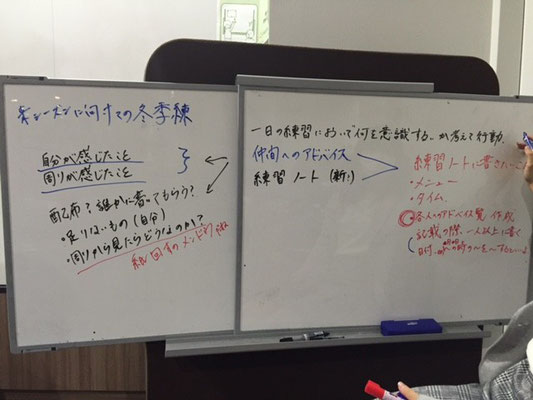 来シーズンに向けての冬季練
自分が感じたこと
周りが感じたこと
配布？誰かに書いてもらう？
・足りないもの（自分）
・周りから見たらどうなのか？
一日の練習において何を意識するか考えて行動.
仲間へのアドバイス
練習ノート（新:）
練習ノートに書きたいこと
・メニュー
・タイム
各人のアドバイス覧 作成
記載の際、一人以上に書く
日付.